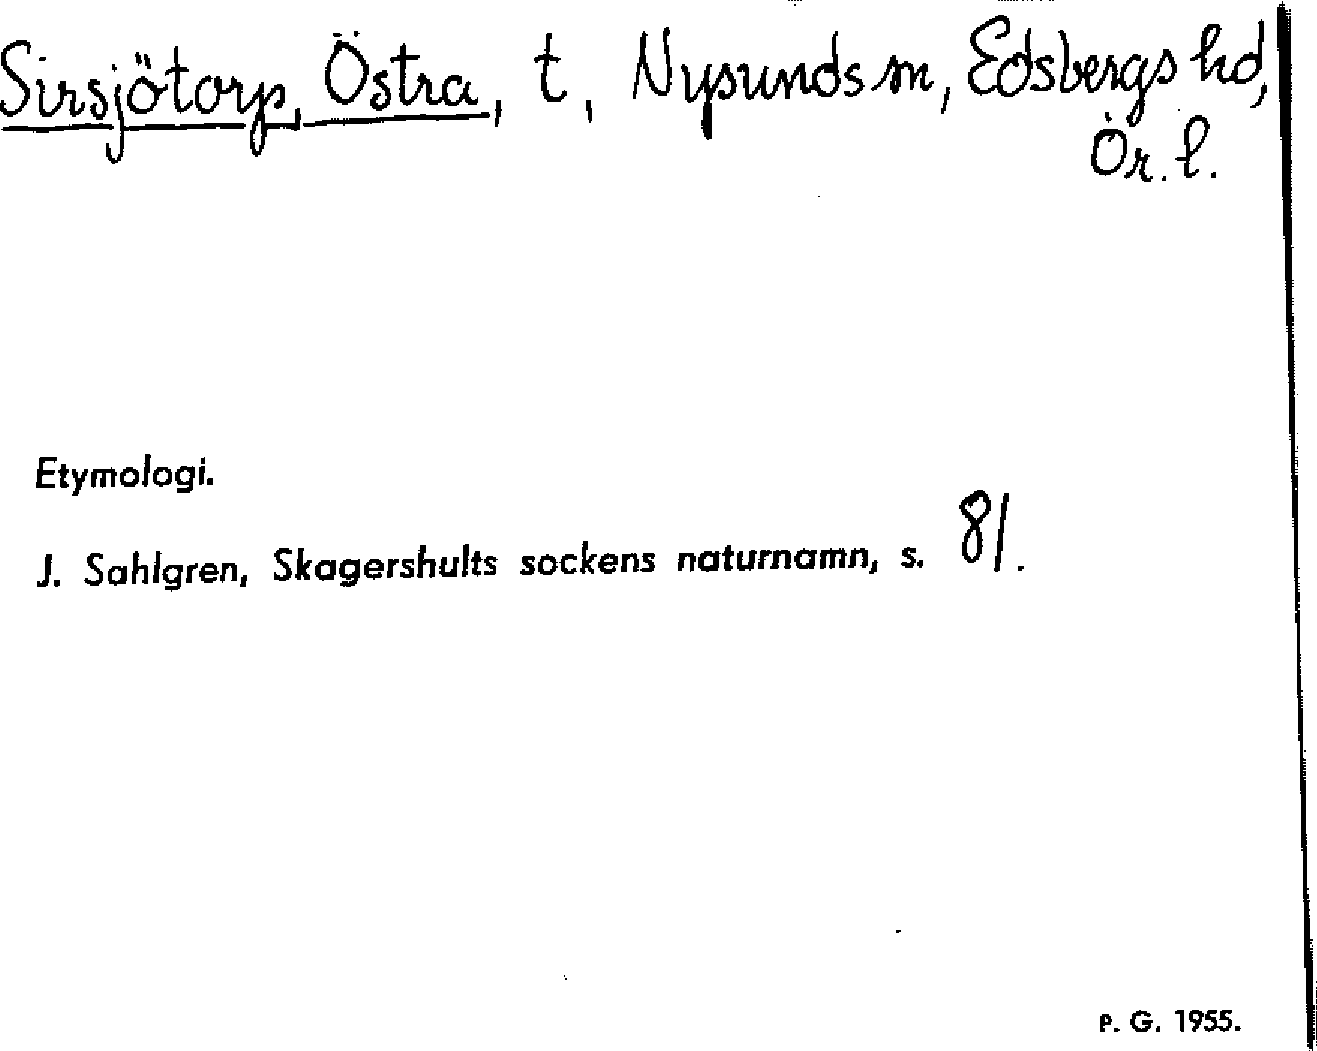 Sirsjötorp, Östra, t, Nysunds sn, Edsbergs hd,
Ör. l.
Etymologi.
J. Sahlgren, Skagershults sockens naturnamn, s. 81.
P. G. 1955.